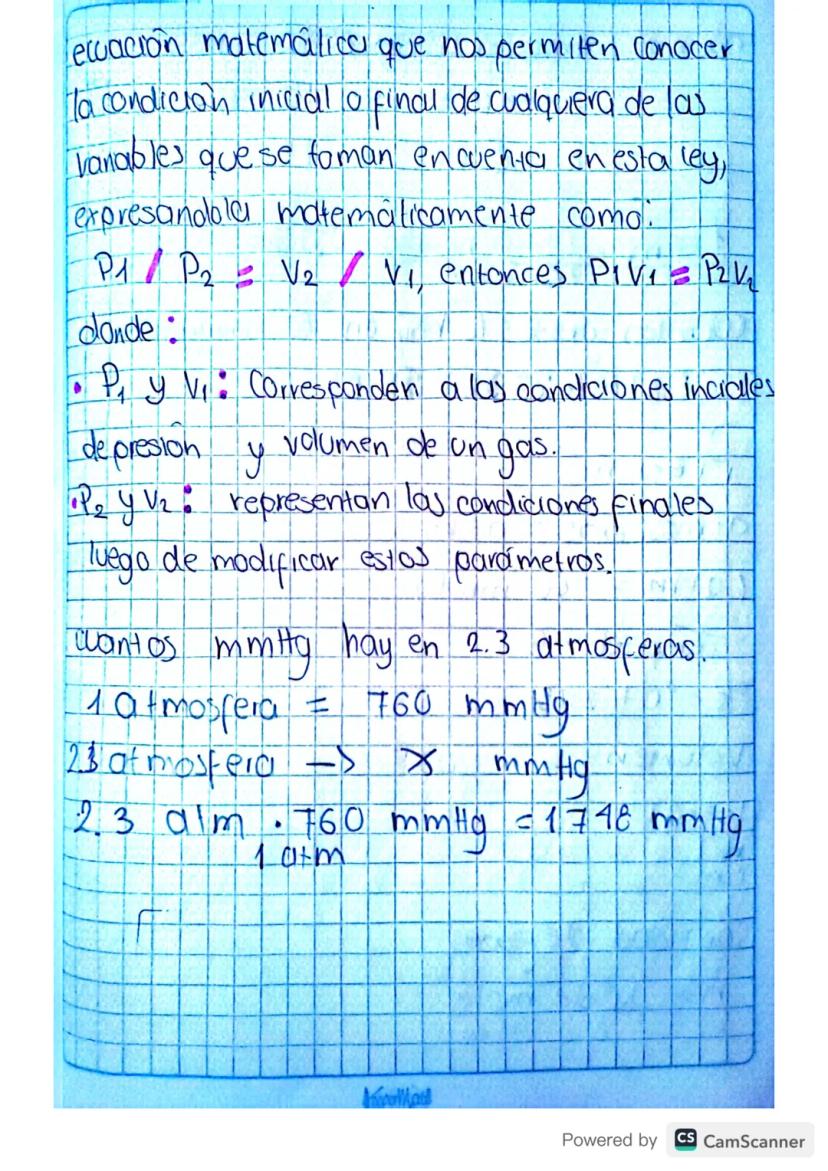 ecuación matemática que nos permiten conocer
la condición inicial o final de cualquiera de las
variables que se toman en cuenta en esta ley,
expresandola matemáticamente como:
P1 / P2 = V2 / V1, entonces P1V1 = P2V2
donde:
• P1 y V1: Corresponden a las condiciones inciales
de presión y volumen de un gas.
• P2 y V2: representan las condiciones finales
luego de modificar estos parámetros.
cuantos mmHg hay en 2.3 atmosferas.
1 atmosfera = 760 mmHg
2.3 atmosfera -> x mmHg
2.3 atm . 760 mmHg = 1748 mmHg
1 atm
Powered by CS CamScanner